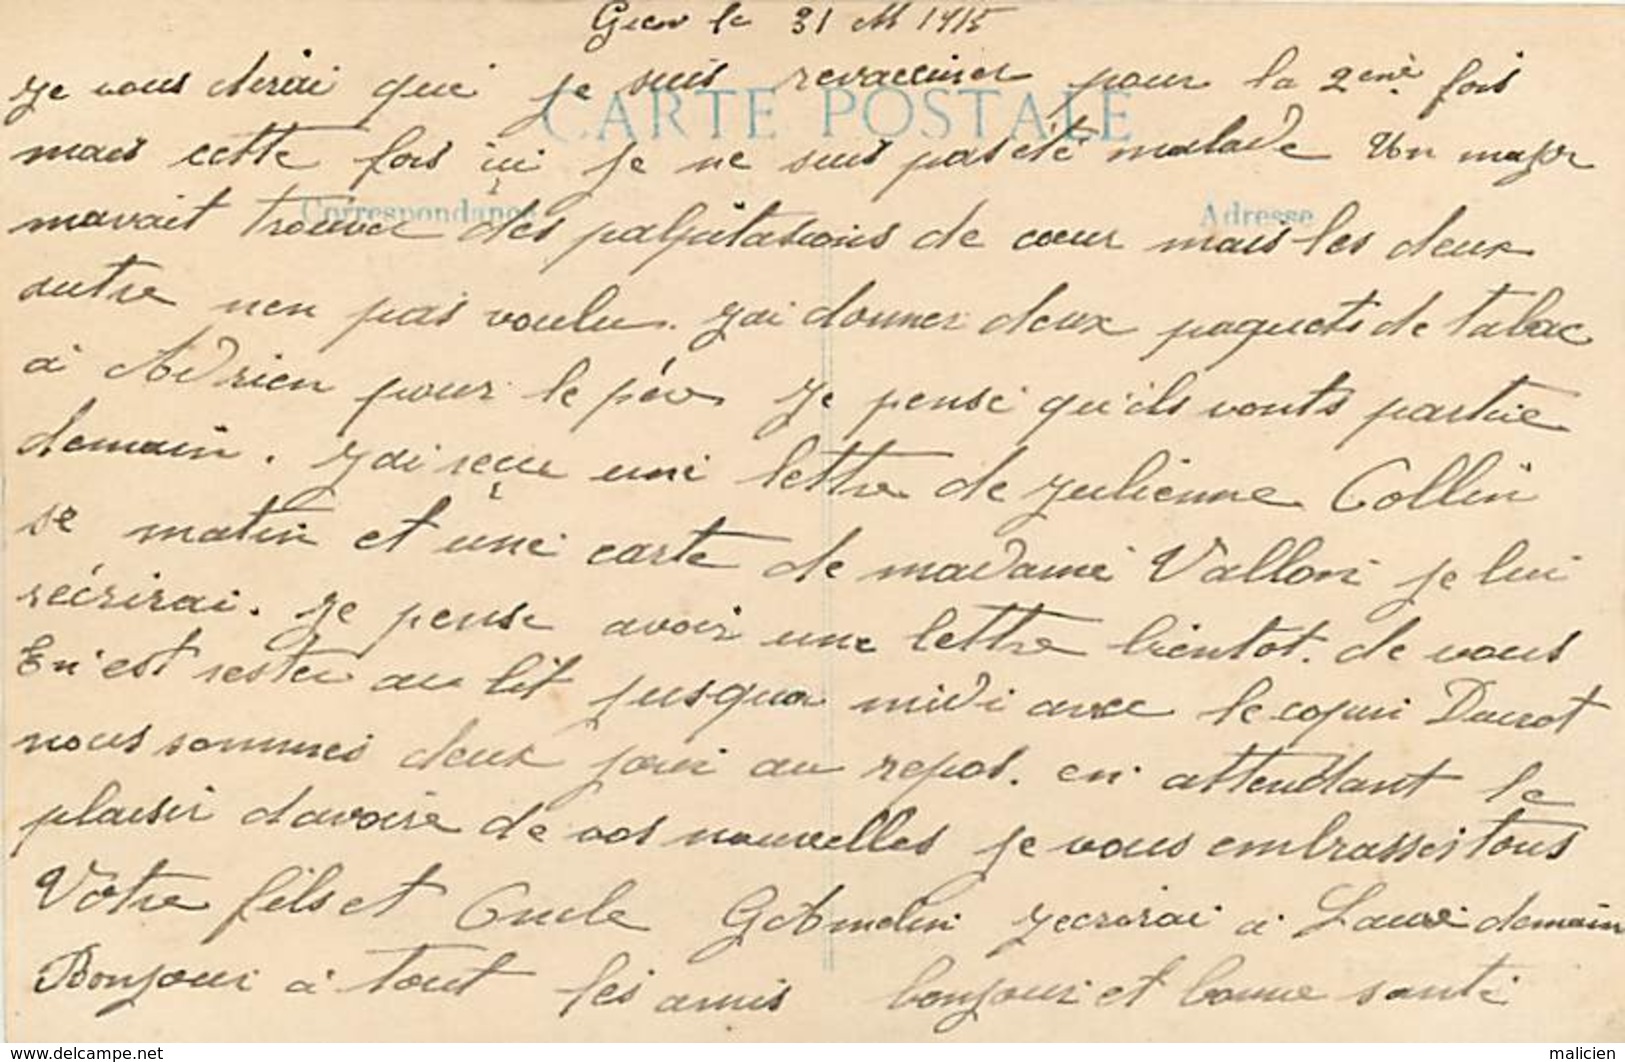 Gien le 31 M 1915
CARTE POSTALE
Correspondance
Adresse
Je vous dirai que je suis revacciner pour la 2eme fois
mais cette fois içi je ne suis pas été malade Un major
mavait trouver des palpitations de cœur mais les deux
autre nen pas voulu. jai donner deux paquets de tabac
à Adrien pour le pér Je pense qu'ils vonts partire
demain. jai reçu une lettre de Julienne Collin
se matin et une carte de madame Vallon je lui
récrirai. Je pense avoir une lettre bientot. de vous
En est rester au lit jusqua midi avec le copin
nous sommes deux jour au repos. en attendant le
plaisir davoire de vos nouvelles je vous embrasses tous
Votre fils et Oncle Jecrirai à Laure demain
Bonjour à tout les amis bonjour et bonne santé
www.delcampe.net
malicien